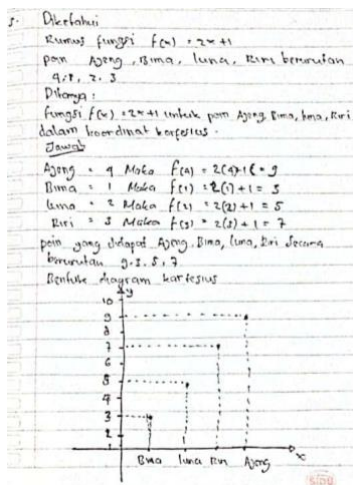 5. Diketahui
Rumus fungsi f(x) = 2x+1
poin Ajeng, Bima, luna, Riri berurutan
4, 1, 2, 3
Ditanya :
fungsi f(x) = 2x+1 untuk poin Ajeng, Bima, luna, Riri
dalam koordinat kartesius.
Jawab
Ajeng = 4 Maka f(4) = 2(4)+1 = 9
Bima = 1 Maka f(1) = 2(1)+1 = 3
luna = 2 Maka f(2) = 2(2)+1 = 5
Riri = 3 Maka f(3) = 2(3)+1 = 7
poin yang didapat Ajeng, Bima, luna, Riri secara
berurutan 9, 3, 5, 7
Bentuk diagram kartesius
y
10
9
8
7
6
5
4
3
2
1
Bima luna Riri Ajeng x